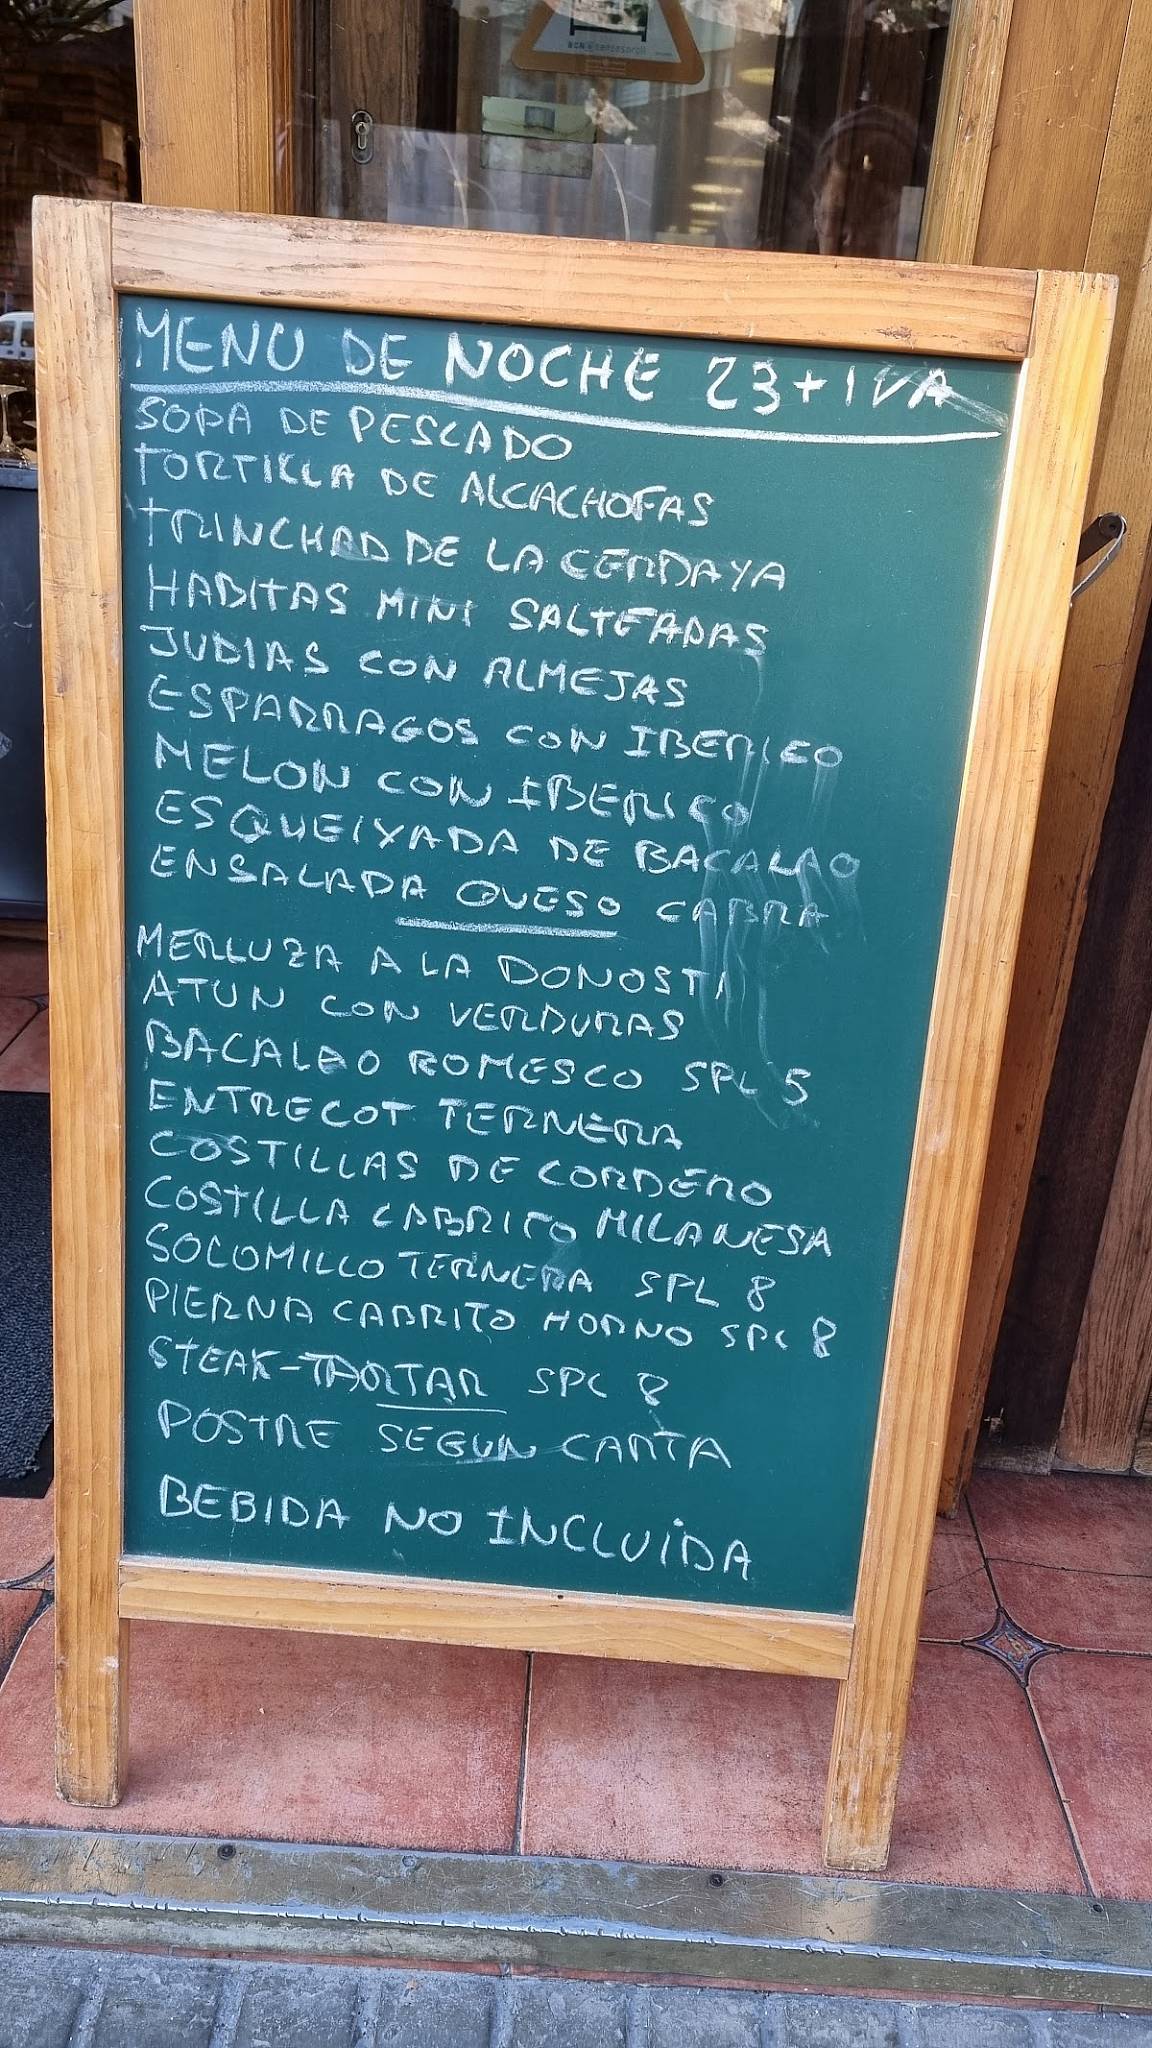 MENU DE NOCHE 23 + IVA
SOPA DE PESCADO
TORTILLA DE ALCACHOFAS
TRINCHAD DE LA CERDAYA
HABITAS MINI SALTEADAS
JUDIAS CON ALMEJAS
ESPARRAGOS CON IBERICO
MELON CON IBERICO
ESQUEIXADA DE BACALAO
ENSALADA QUESO CABRA
MERLUZA A LA DONOSTI
ATUN CON VERDURAS
BACALAO ROMESCO SPL 5
ENTRECOT TERNERA
COSTILLAS DE CORDERO
COSTILLA CABRITO MILANESA
SOLOMILLO TERNERA SPL 8
PIERNA CABRITO HORNO SPL 8
STEAK-TARTAR SPL 8
POSTRE SEGUN CARTA
BEBIDA NO INCLUIDA